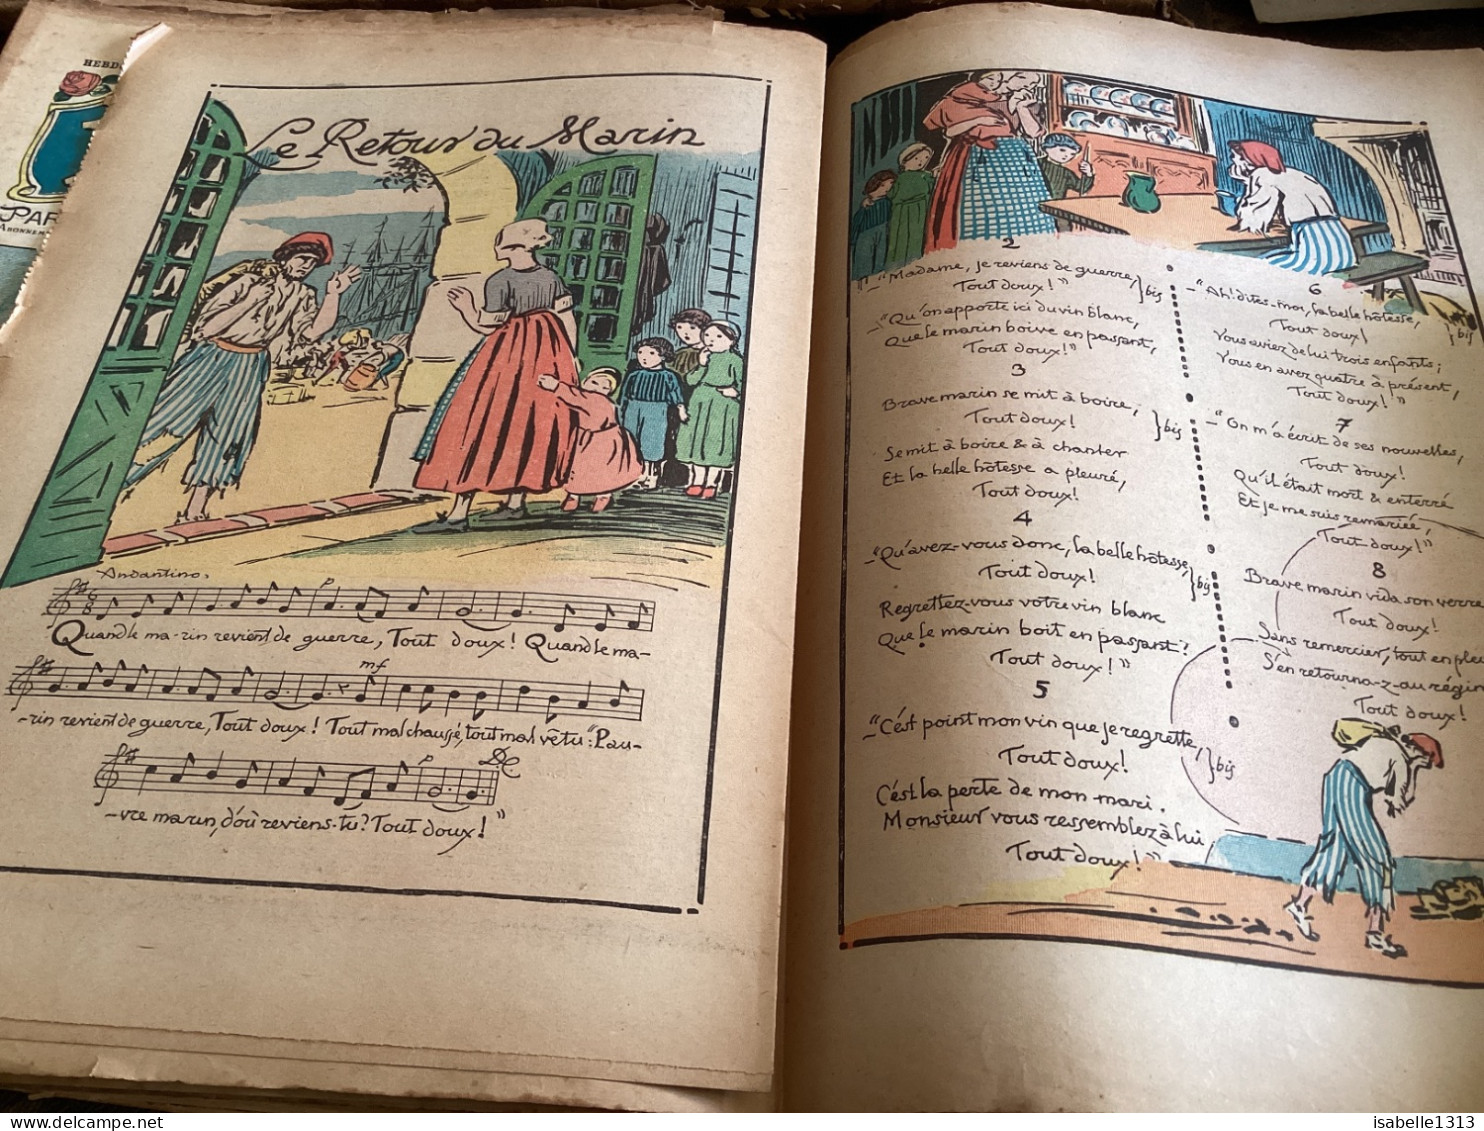 HEBD
PAR
ABONNEM
Le Retour du Marin
Andantino.
p
Quand le ma-rin revient de guerre, Tout doux! Quand le ma-
mf
-rin revient de guerre, Tout doux! Tout mal chaussé, tout mal vêtu: "Pau-
p DC
-vre marin, d'où reviens-tu? Tout doux!"
2
_"Madame, je reviens de guerre,
Tout doux!" } bis
_"Qu'on apporte ici du vin blanc,
Que le marin boive en passant,
Tout doux!"
3
Brave marin se mit à boire,
Tout doux! } bis
Se mit à boire & à chanter
Et la belle hôtesse a pleuré,
Tout doux!
4
_"Qu'avez-vous donc, la belle hôtesse,
Tout doux! } bis
Regrettez-vous votre vin blanc
Que le marin boit en passant?
Tout doux!"
5
_"C'est point mon vin que je regrette,
Tout doux! } bis
C'est la perte de mon mari.
Monsieur vous ressemblez à lui,
Tout doux!"
6
_"Ah! dites-moi, la belle hôtesse,
Tout doux! } bis
Vous aviez de lui trois enfants;
Vous en avez quatre à présent,
Tout doux!"
7
_"On m'a écrit de ses nouvelles,
Tout doux!
Qu'il était mort & enterré
Et je me suis remariée,
Tout doux!"
8
Brave marin vida son verre
Tout doux!
Sans remercier, tout en pleu
S'en retourna-z-au régi
Tout doux!
isabelle1313